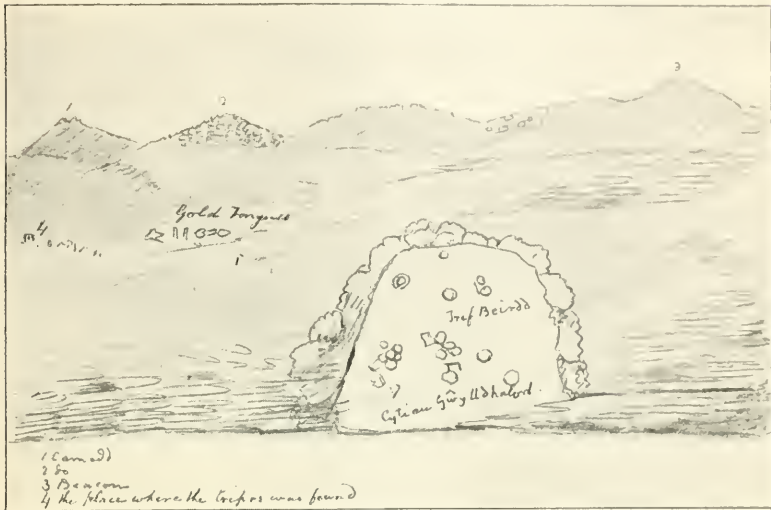 1
2
3
4
Gold Torques
Tref Beirdd
Cytiau Gŵyddhalod
1 Carnedd
2 do
3 Beacon
4 the place where the tripos was found